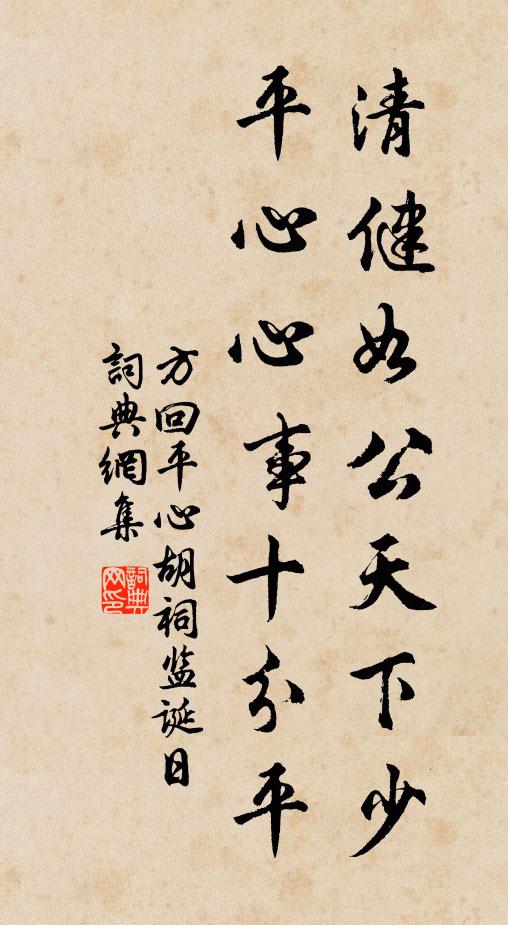 清健如公天下少
平心心事十分平
方回平心胡祠监誕日
詞典網集
詞典網印